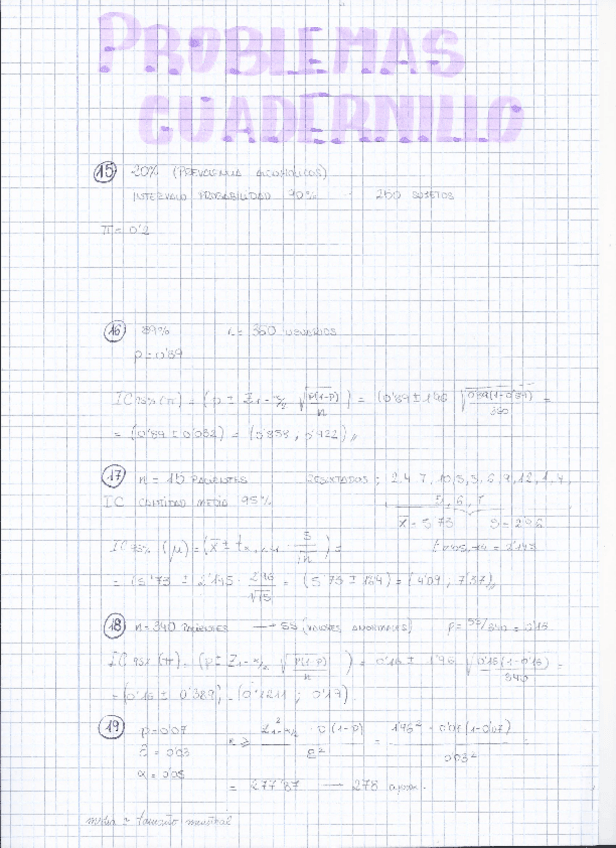 PROBLEMAS
CUADERNILLO
15 20% (PREVALENCIA ALCOHÓLICOS)
INTERVALO PROBABILIDAD 90% 250 SUJETOS
π = 0'2
16 89% n = 350 USUARIOS
p = 0'89
IC 95% (π) = (p ± Z1-α/2 √p(1-p)/n) = (0'89 ± 1'96 √0'89(1-0'89)/350 =
= (0'89 ± 0'032) = (0'858, 0'922)
17 n = 15 PACIENTES RESULTADOS: 2, 4, 7, 10, 5, 3, 6, 9, 12, 1, 4,
IC CANTIDAD MEDIA 95% 6,
x̄ = 5'73 S = 2'96
IC 95% (μ) = (x̄ ± t S/√n) =
= (5'73 ± 2'145 · 2'96/√15 = (5'73 ± 1'64) = (4'09, 7'37)
18 n = 340 PACIENTES → 55 (VALORES ANORMALES) p = 55/340 = 0'16
IC 95% (π) = (p ± Z1-α/2 √p(1-p)/n) = 0'16 ± 1'96 √0'16(1-0'16)/340 =
= (0'16 ± 0'389) = (0'1211 ; 0'17)
19 p = 0'07 n ≥ Z²1-α/2 · p(1-p)/E² = 1'96² · (1-0'07)/0'03²
= 0'03
α = 0'05 = 277'87 → 278 aprox.
tamaño muestral